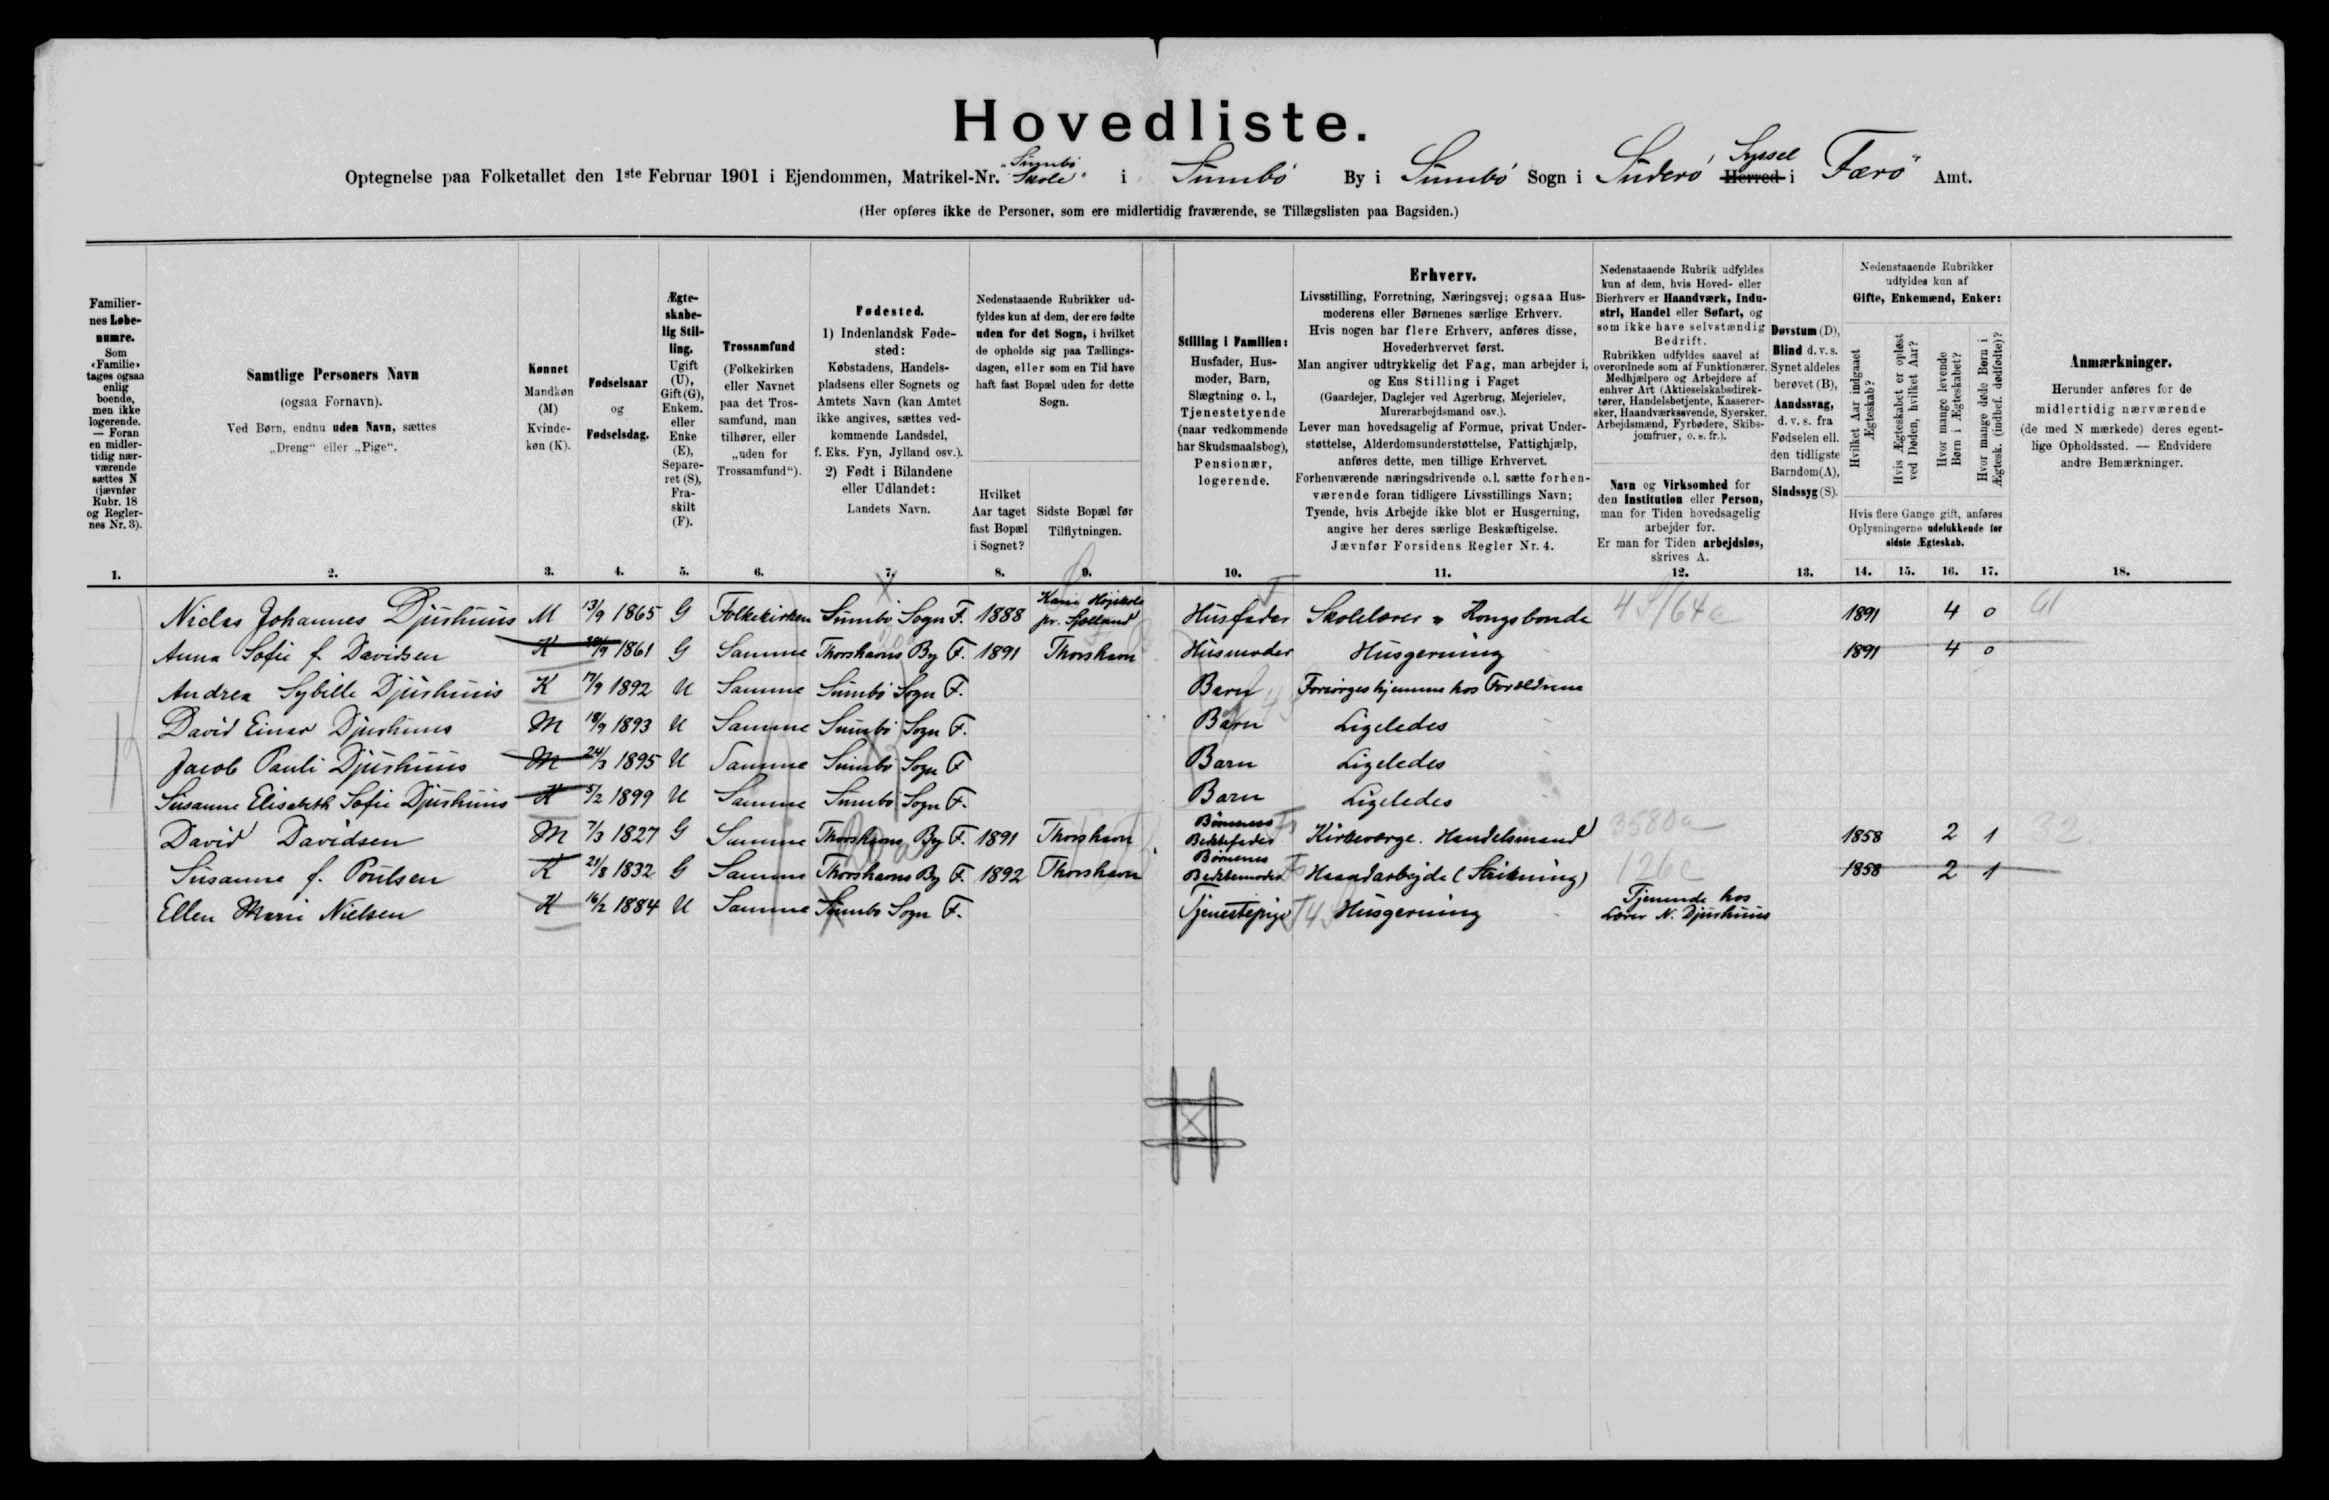 Hovedliste.
Optegnelse paa Folketallet den 1ste Februar 1901 i Ejendommen, Matrikel-Nr. "Sumbø Skole" i Sumbø By i Sumbø Sogn i Suderø Syssel Herred i Færø Amt.
(Her opføres ikke de Personer, som ere midlertidig fraværende, se Tillægslisten paa Bagsiden.)
Familier-
nes Løbe-
numre.
Som
«Familie»
tages ogsaa
enlig
boende,
men ikke
logerende.
— Foran
en midler-
tidig nær-
værende
sættes N
(jævnfør
Rubr. 18
og Regler-
nes Nr. 3).
Samtlige Personers Navn
(ogsaa Fornavn).
Ved Børn, endnu uden Navn, sættes
„Dreng“ eller „Pige“.
Kønnet
Mandkøn
(M)
Kvinde-
køn (K).
Fødselsaar
og
Fødselsdag.
Ægte-
skabe-
lig Stil-
ling.
Ugift
(U),
Gift (G),
Enkem.
eller
Enke
(E),
Separe-
ret (S),
Fra-
skilt
(F).
Trossamfund
(Folkekirken
eller Navnet
paa det Tros-
samfund, man
tilhører, eller
„uden for
Trossamfund“).
Fødested.
1) Indenlandsk Føde-
sted:
Købstadens, Handels-
pladsens eller Sognets og
Amtets Navn (kan Amtet
ikke angives, sættes ved-
kommende Landsdel,
f. Eks. Fyn, Jylland osv.).
2) Født i Bilandene
eller Udlandet:
Landets Navn.
Nedenstaaende Rubrikker ud-
fyldes kun af dem, der ere fødte
uden for det Sogn, i hvilket
de opholde sig paa Tællings-
dagen, eller som en Tid have
haft fast Bopæl uden for dette
Sogn.
Hvilket
Aar taget
fast Bopæl
i Sognet?
Sidste Bopæl før
Tilflytningen.
Stilling i Familien:
Husfader, Hus-
moder, Barn,
Slægtning o. l.,
Tjenestetyende
(naar vedkommende
har Skudsmaalsbog),
Pensionær,
logerende.
Erhverv.
Livsstilling, Forretning, Næringsvej; ogsaa Hus-
moderens eller Børnenes særlige Erhverv.
Hvis nogen har flere Erhverv, anføres disse,
Hovederhvervet først.
Man angiver udtrykkelig det Fag, man arbejder i,
og Ens Stilling i Faget
(Gaardejer, Daglejer ved Agerbrug, Mejerielev,
Murerarbejdsmand osv.).
Lever man hovedsagelig af Formue, privat Under-
støttelse, Alderdomsunderstøttelse, Fattighjælp,
anføres dette, men tillige Erhvervet.
Forhenværende næringsdrivende o. l. sætte forhen-
værende foran tidligere Livsstillings Navn;
Tyende, hvis Arbejde ikke blot er Husgerning,
angive her deres særlige Beskæftigelse.
Jævnfør Forsidens Regler Nr. 4.
Nedenstaaende Rubrik udfyldes
kun af dem, hvis Hoved- eller
Bierhverv er Haandværk, Indu-
stri, Handel eller Søfart, og
som ikke have selvstændig
Bedrift.
Rubrikken udfyldes saavel af
overordnede som af Funktionærer,
Medhjælpere og Arbejdere af
enhver Art (Aktieselskabsdirek-
tører, Handelsbetjente, Kasserer-
sker, Haandværkssvende, Syersker,
Arbejdsmænd, Fyrbødere, Skibs-
jomfruer, o. s. fr.).
Navn og Virksomhed for
den Institution eller Person,
man for Tiden hovedsagelig
arbejder for.
Er man for Tiden arbejdsløs,
skrives A.
Døvstum (D),
Blind d. v. s.
Synet aldeles
berøvet (B),
Aandssvag,
d. v. s. fra
Fødselen ell.
den tidligste
Barndom (A),
Sindssyg (S).
Nedenstaaende Rubrikker
udfyldes kun af
Gifte, Enkemænd, Enker:
Hvilket Aar indgaaet
Ægteskab?
Hvis Ægteskabet er opløst
ved Døden, hvilket Aar?
Hvor mange levende
Børn i Ægteskabet?
Hvor mange døde Børn i
Ægtesk. (indbef. dødfødte)?
Hvis flere Gange gift, anføres
Oplysningerne udelukkende for
sidste Ægteskab.
Anmærkninger.
Herunder anføres for de
midlertidig nærværende
(de med N mærkede) deres egent-
lige Opholdssted. — Endvidere
andre Bemærkninger.
1. 2. 3. 4. 5. 6. 7. 8. 9. 10. 11. 12. 13. 14. 15. 16. 17. 18.
Niclas Johannes Djurhuus M 13/9 1865 G Folkekirken Sumbø Sogn F. 1888 Højskole pr. Sjælland Husfader Skolelærer Kongsbonde 1891 4 0
Anna Sofie f. Davidsen K 1861 G Samme Thorshavns By F. 1891 Thorshavn Husmoder Husgerning 1891 4 0
Andrea Sybille Djurhuus K 17/9 1892 U Samme Sumbø Sogn F. Barn Forsørges hjemme hos Forældrene
David Einar Djurhuus M 18/9 1893 U Samme Sumbø Sogn F. Barn Ligeledes
Jacob Pauli Djurhuus M 24/3 1895 U Samme Sumbø Sogn F Barn Ligeledes
Susanne Elisabeth Sofie Djurhuus K 5/2 1899 U Samme Sumbø Sogn F. Barn Ligeledes
David Davidsen M 7/3 1827 G Samme Thorshavns By F. 1891 Thorshavn Børnenes Bedstefader Kirkeværge. Handelsmand 3580a 1858 2 1 32
Susanne f. Poulsen K 21/8 1832 G Samme Thorshavns By F. 1892 Thorshavn Børnenes Bedstemoder Haandarbejde (Strikning) 126c 1858 2 1
Ellen Marie Nielsen K 16/2 1884 U Samme Sumbø Sogn F. Tjenestepige Husgerning Tjenende hos Lærer N. Djurhuus